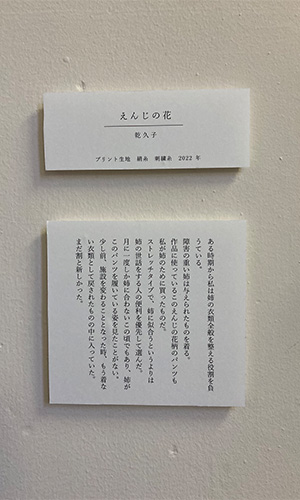 えんじの花
乾久子
プリント生地　絹糸　刺繍糸　2022 年
ある時期から私は姉の衣類全般を整える役割を負
うている。
障害の重い姉は与えられたものを着る。
作品に使っているこのえんじの花柄のパンツも
私が姉のために買ったものだ。
ストレッチタイプで、姉に似合うというよりは
姉の世話をする人の便利を優先して選んだ。
月に一度しか姉に会わないこの頃でもあり、姉が
このパンツを履いている姿を見たことがない。
少し前、施設を変わることとなった時、もう着な
い衣類として戻されたものの中に入っていた。
まだ割と新しかった。